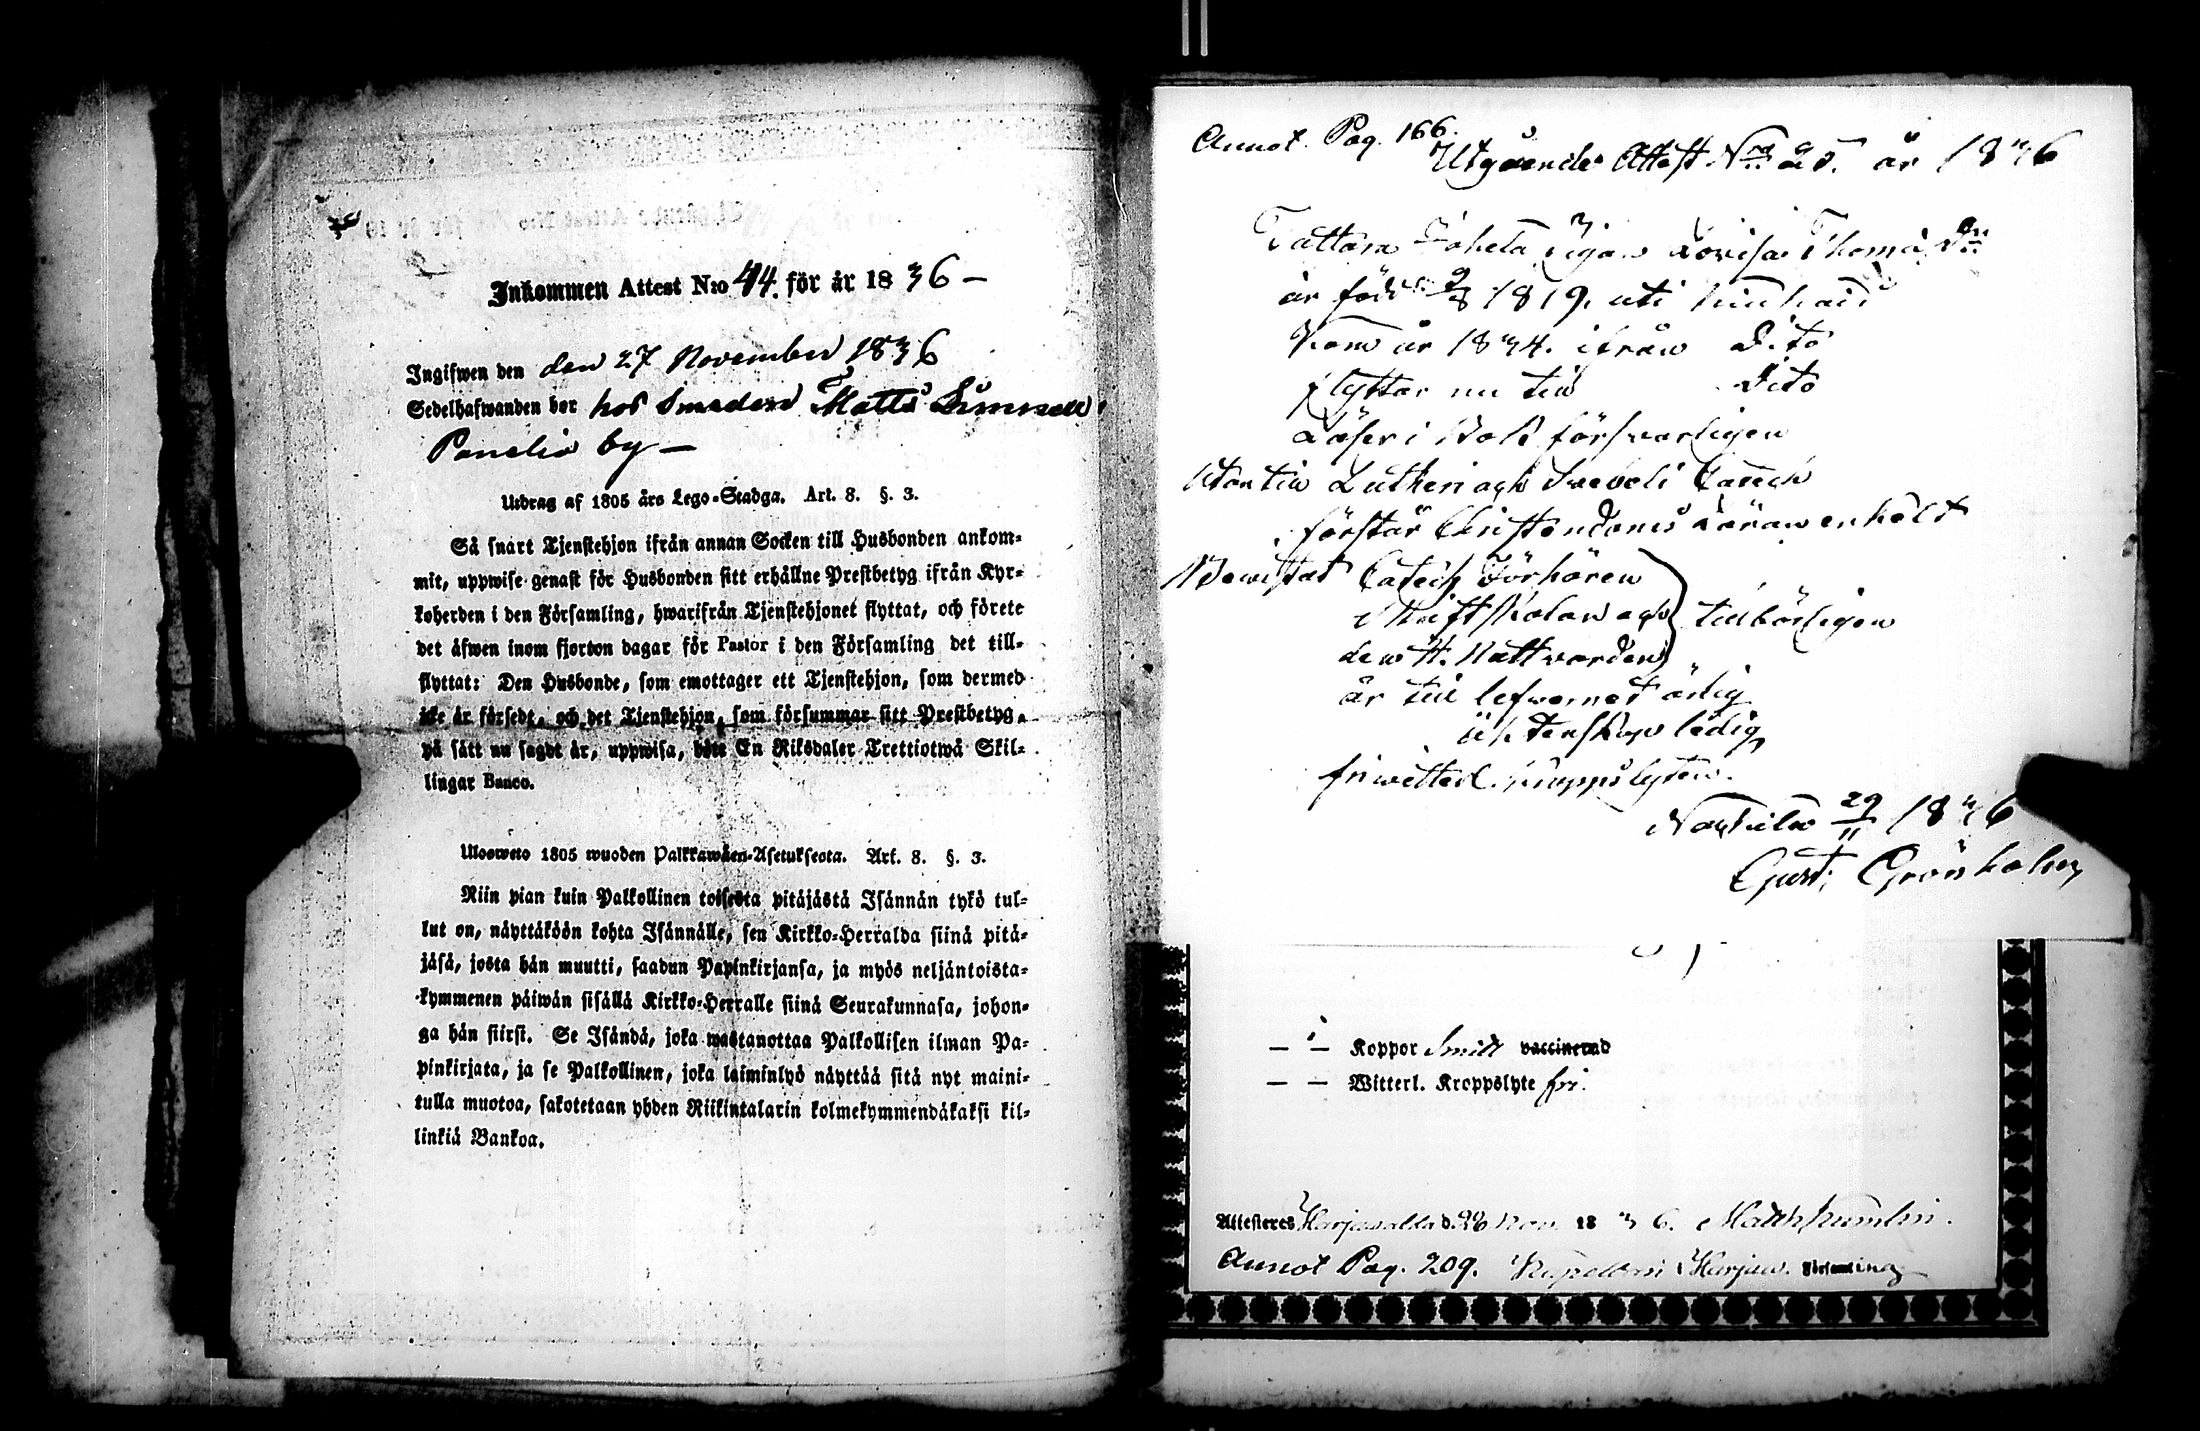 Inkommen Attest N:o 44. för år 1836 –
Ingifwen den den 27 November 1836
Sedelhafwanden bor hos Smeden Matts
Panelia by –
Utdrag af 1805 års Lego-Stadga. Art. 8. §. 3.
Så snart Tjenstehjon ifrån annan Socken till Husbonden ankom-
mit, uppwise genast för Husbonden sitt erhållne Prestbetyg ifrån Kyr-
koherden i den Församling, hwarifrån Tjenstehjonet flyttat, och förete
det äfwen inom fjorton dagar för Pastor i den Församling det till-
flyttat: Den Husbonde, som emottager ett Tjenstehjon, som dermed
icke är försedt, och det Tjenstehjon, som försummar sitt Prestbetyg,
på sätt nu sagdt är, uppwisa, böte En Riksdaler Trettiotwå Skil-
lingar Banco.
Ulosweto 1805 wuoden Palkkawäen-Asetuksesta. Art. 8. §. 3.
Niin pian kuin Palkollinen toisesta pitäjästä Isännän tykö tul-
lut on, näyttäköön kohta Isännälle, sen Kirkko-Herralda siinä pitä-
jäsä, josta hän muutti, saadun Papinkirjansa, ja myös neljäntoista-
kymmenen päiwän sisällä Kirkko-Herralle siinä Seurakunnasa, johon-
ga hän siirsi. Se Isändä, joka wastanottaa Palkollisen ilman Pa-
pinkirjata, ja se Palkollinen, joka laiminlyö näyttää sitä nyt maini-
tulla muotoa, sakotetaan yhden Riikintalarin kolmekymmendäkaksi kil-
linkiä Bankoa.
Annot. Pag. 166.
Utgående Attest N:ro 25. år 1836
Lovisa Thomæ D:r
är född 9/8 1819. uti
Kom år 1834. ifrån Dito
flyttar nu till Dito
Läser i Bok förswarligen
Utan till Lutheri och Swebeli Catech
förstår Christendoms Läran enkelt
Bewistat Catech Förhören
Skriftskolan och tillbörligen
den H. Nattvarden
är till lefwernet ärlig
äktenskaps ledig
fri witterl. kroppslyten.
29/11 1836
Gust: Grönholm
– – Koppor Smitt vaccinerad
– – Witterl. Kroppslyte fri.
Attesteras Harjavalda d. 26 Nov. 1836.
Annot Pag. 209. Harjav. Församling